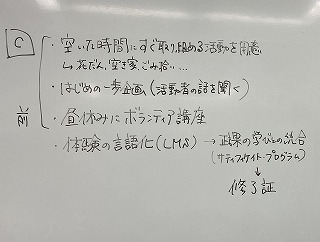 C
・空いた時間にすぐ取り組める活動を用意
↳花だん、空き家、ごみ拾い…
・はじめの一歩企画(活動者の話を聞く)
前
・昼休みにボランティア講座
・体験の言語化(LMS) → 正課の学びとの統合
(サティフィケイト・プログラム)
↓
修了証